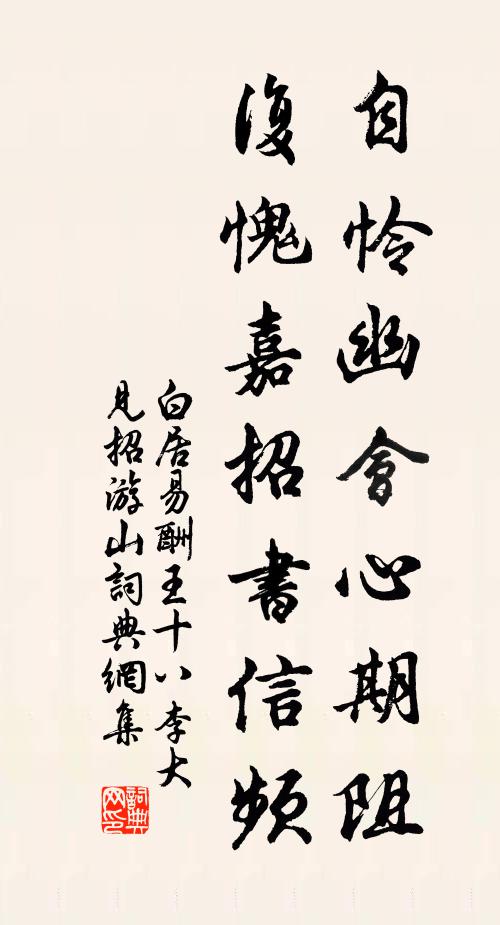 自怜幽會心期阻
復愧嘉招書信頻
白居易酬王十八李大
見招游山詞典網集
詞典网印